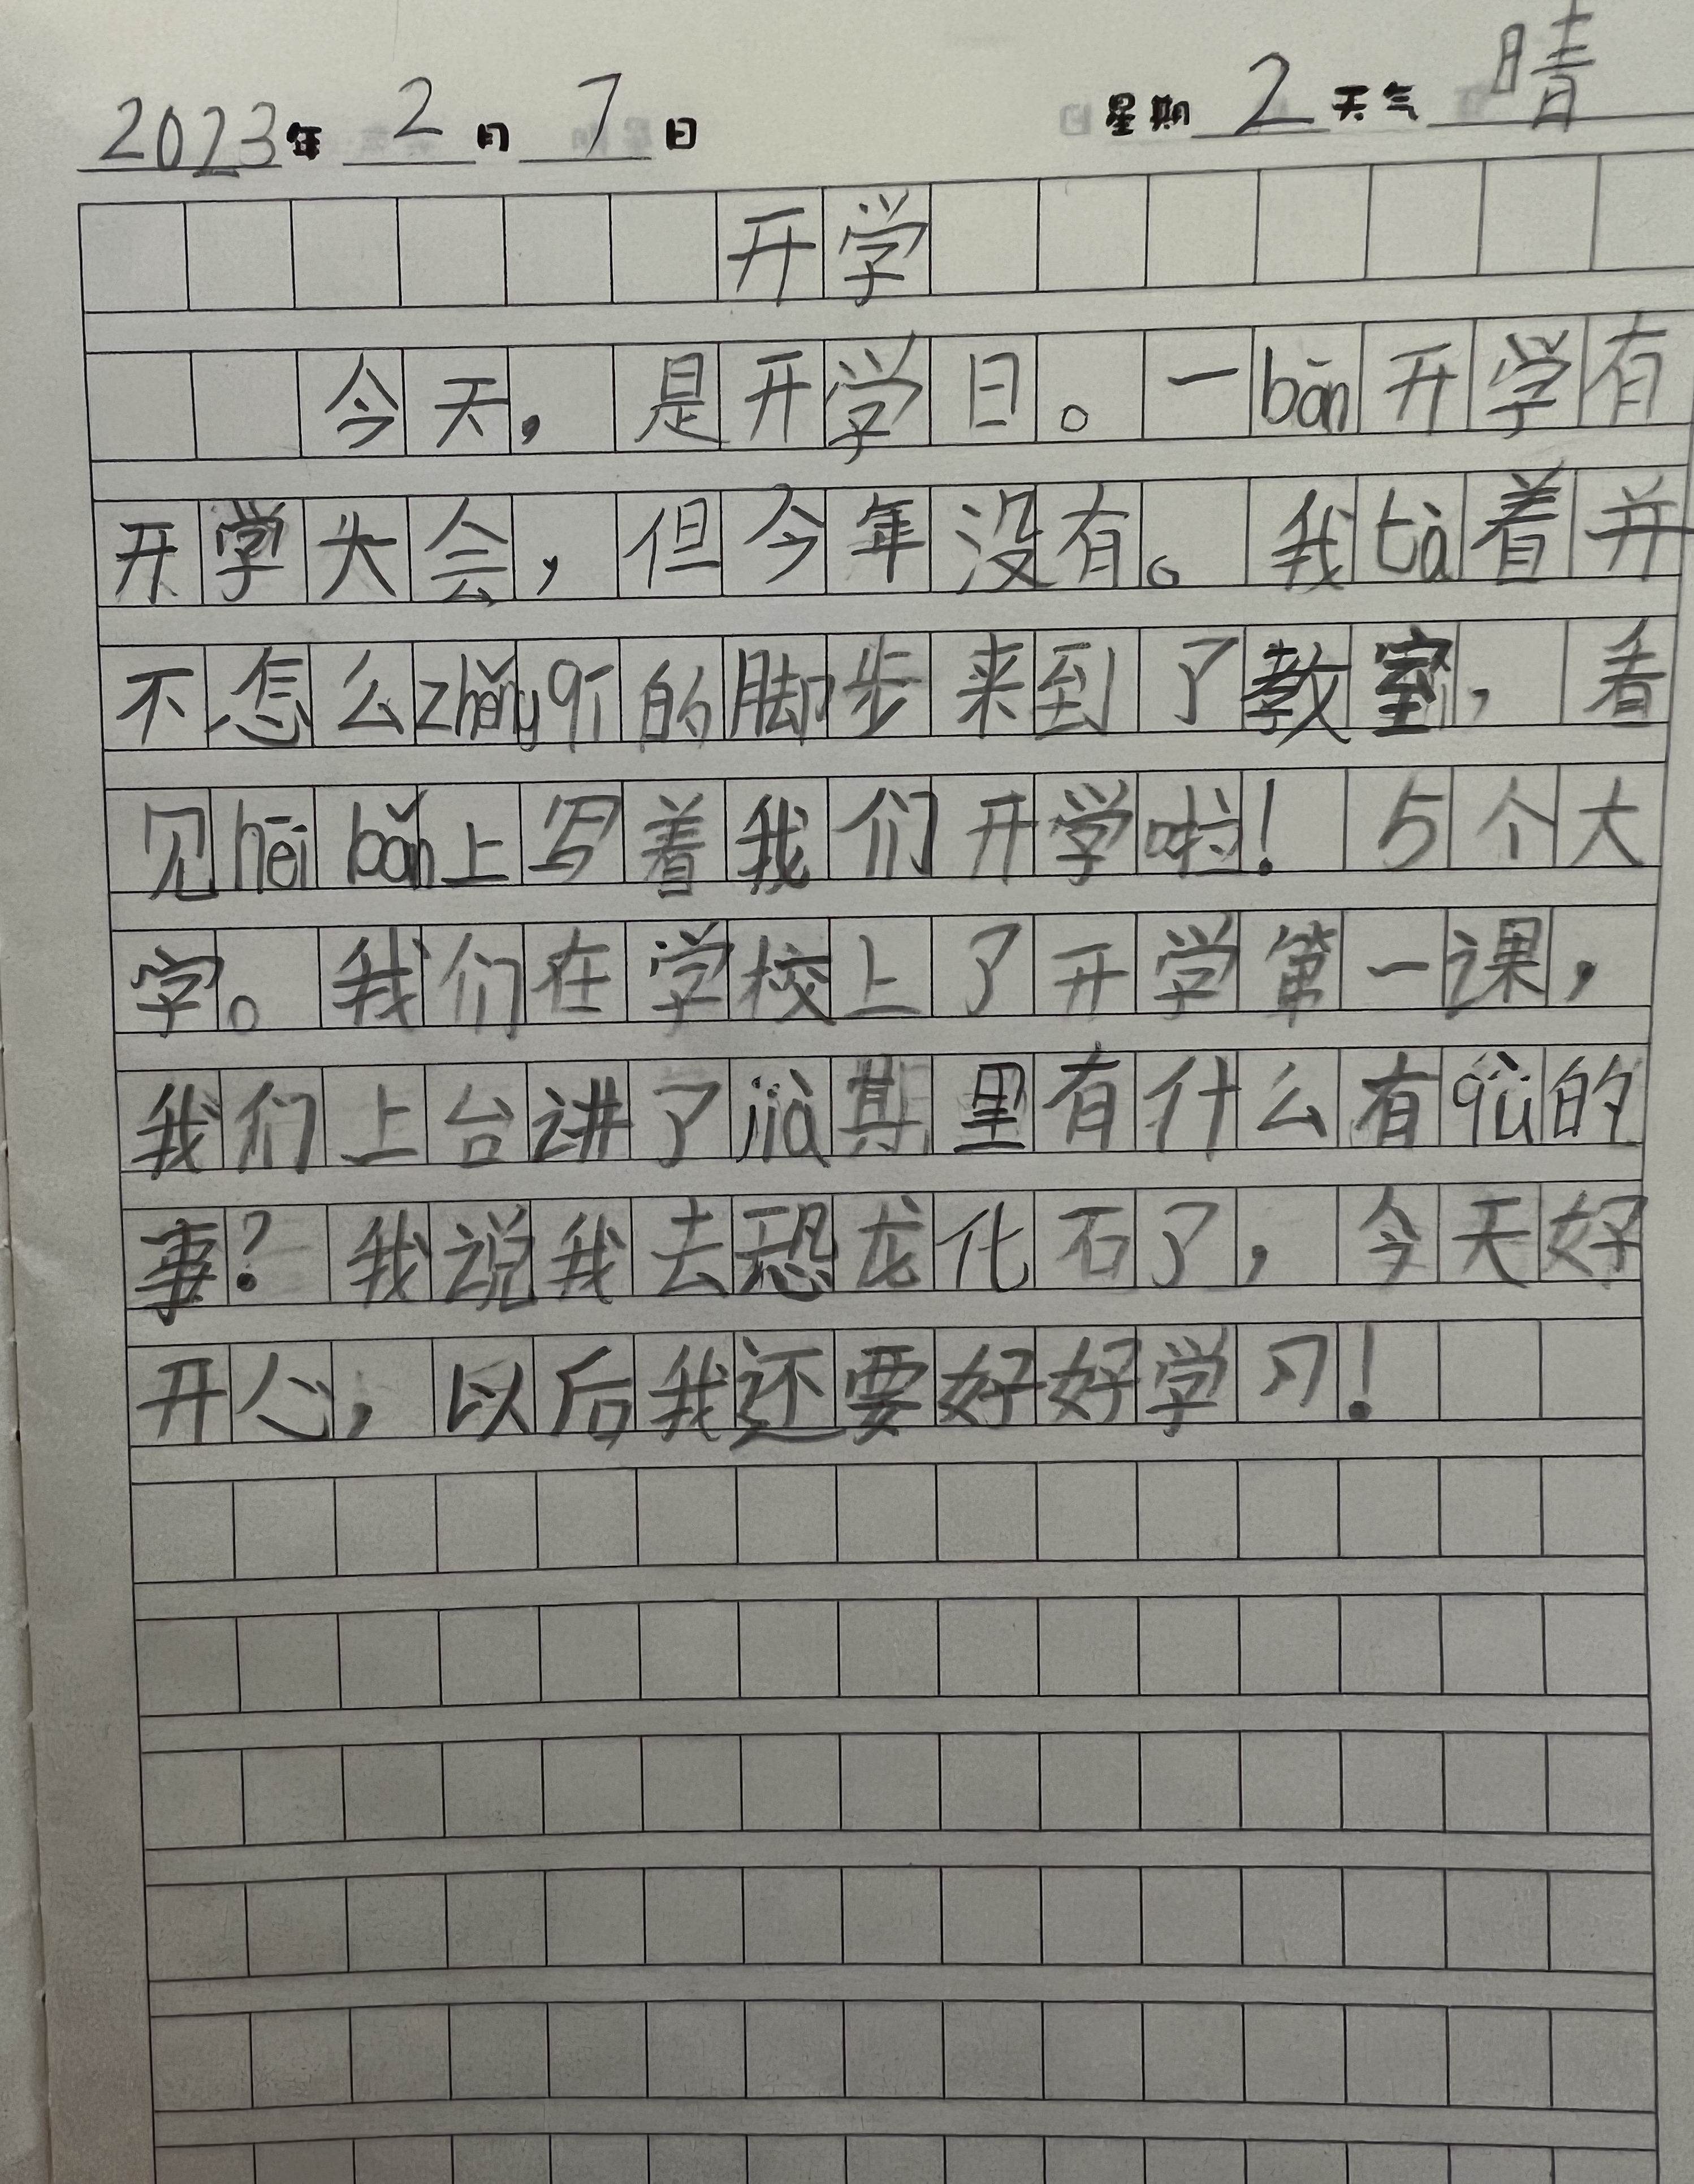 2023年 2 月 7 日 星期 2 天气 晴
开学
今天,是开学日。一bān开学有
开学大会,但今年没有。我tà着并
不怎么zhěngqí的脚步来到了教室,看
见hēibǎn上写着我们开学啦!5个大
字。我们在学校上了开学第一课,
我们上台讲了jià期里有什么有qù的
事?我说我去恐龙化石了,今天好
开心,以后我还要好好学习!